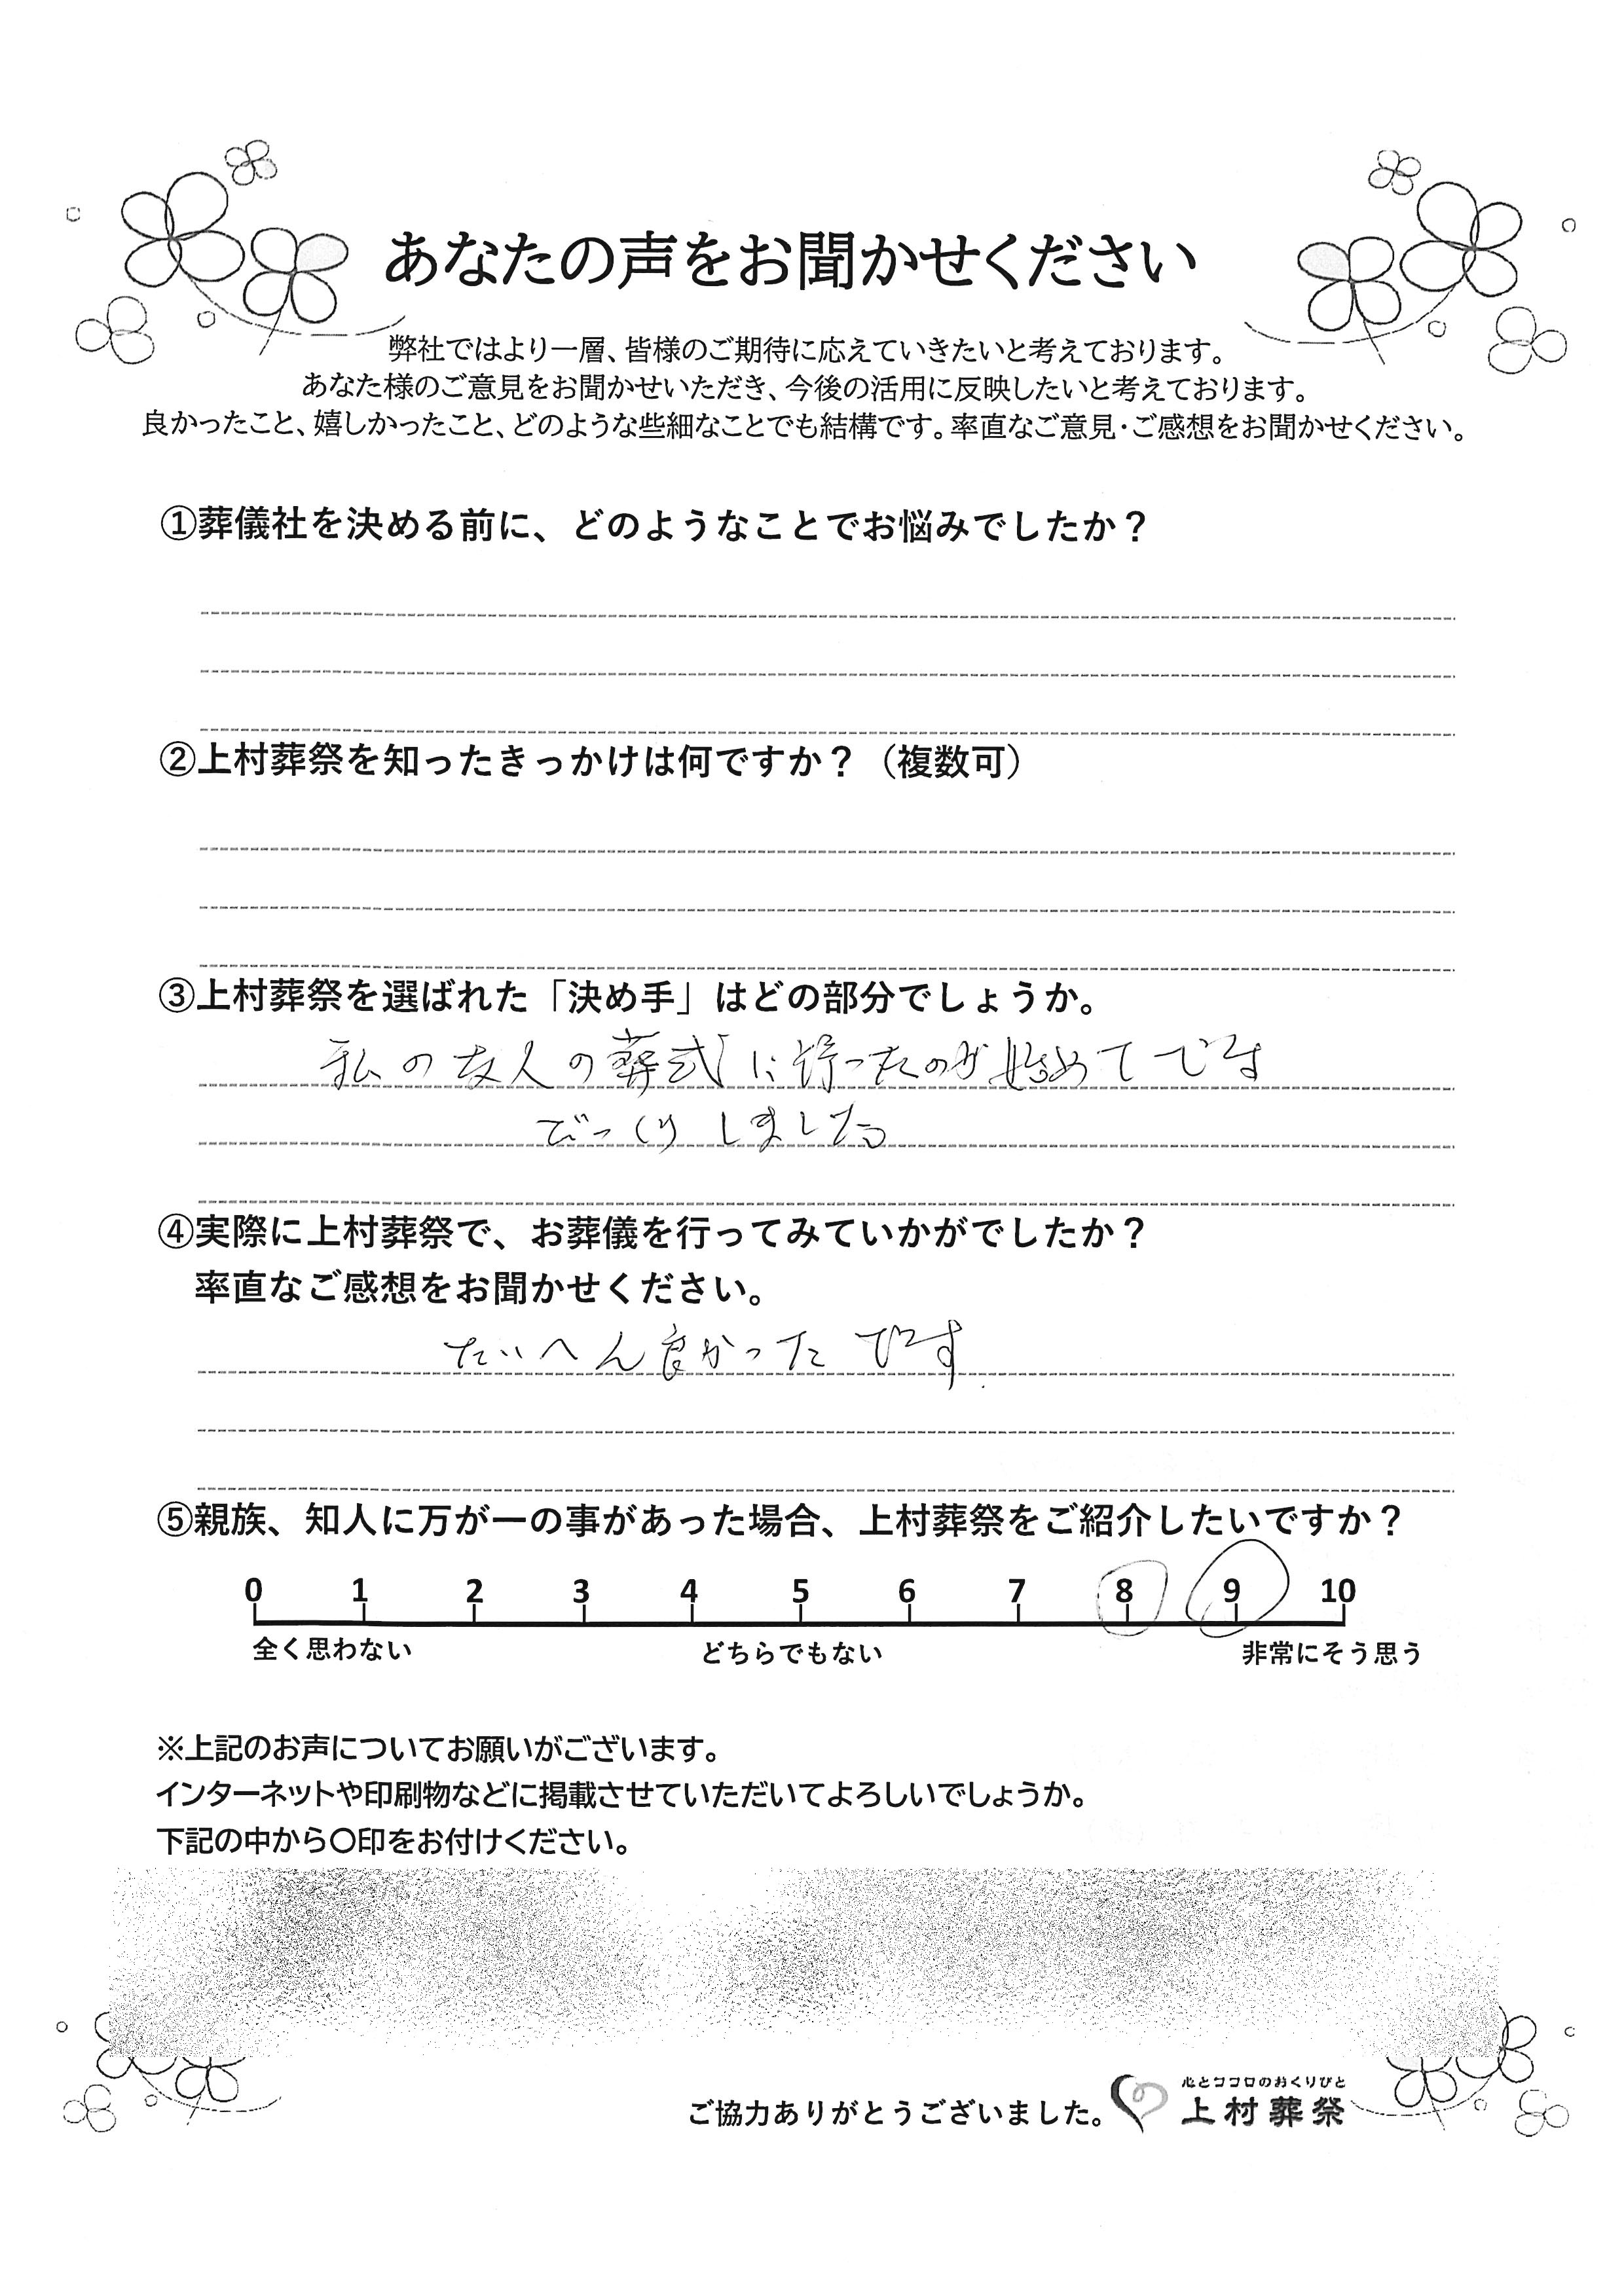 あなたの声をお聞かせください
弊社ではより一層、皆様のご期待に応えていきたいと考えております。
あなた様のご意見をお聞かせいただき、今後の活用に反映したいと考えております。
良かったこと、嬉しかったこと、どのような些細なことでも結構です。率直なご意見・ご感想をお聞かせください。
①葬儀社を決める前に、どのようなことでお悩みでしたか？
②上村葬祭を知ったきっかけは何ですか？（複数可）
③上村葬祭を選ばれた「決め手」はどの部分でしょうか。
私の友人の葬式に行ったのが始めてです
びっくりしました
④実際に上村葬祭で、お葬儀を行ってみていかがでしたか？
率直なご感想をお聞かせください。
たいへん良かったです
⑤親族、知人に万が一の事があった場合、上村葬祭をご紹介したいですか？
0 1 2 3 4 5 6 7 8 9 10
全く思わない どちらでもない 非常にそう思う
※上記のお声についてお願いがございます。
インターネットや印刷物などに掲載させていただいてよろしいでしょうか。
下記の中から〇印をお付けください。
心とココロのおくりびと
ご協力ありがとうございました。 上村葬祭